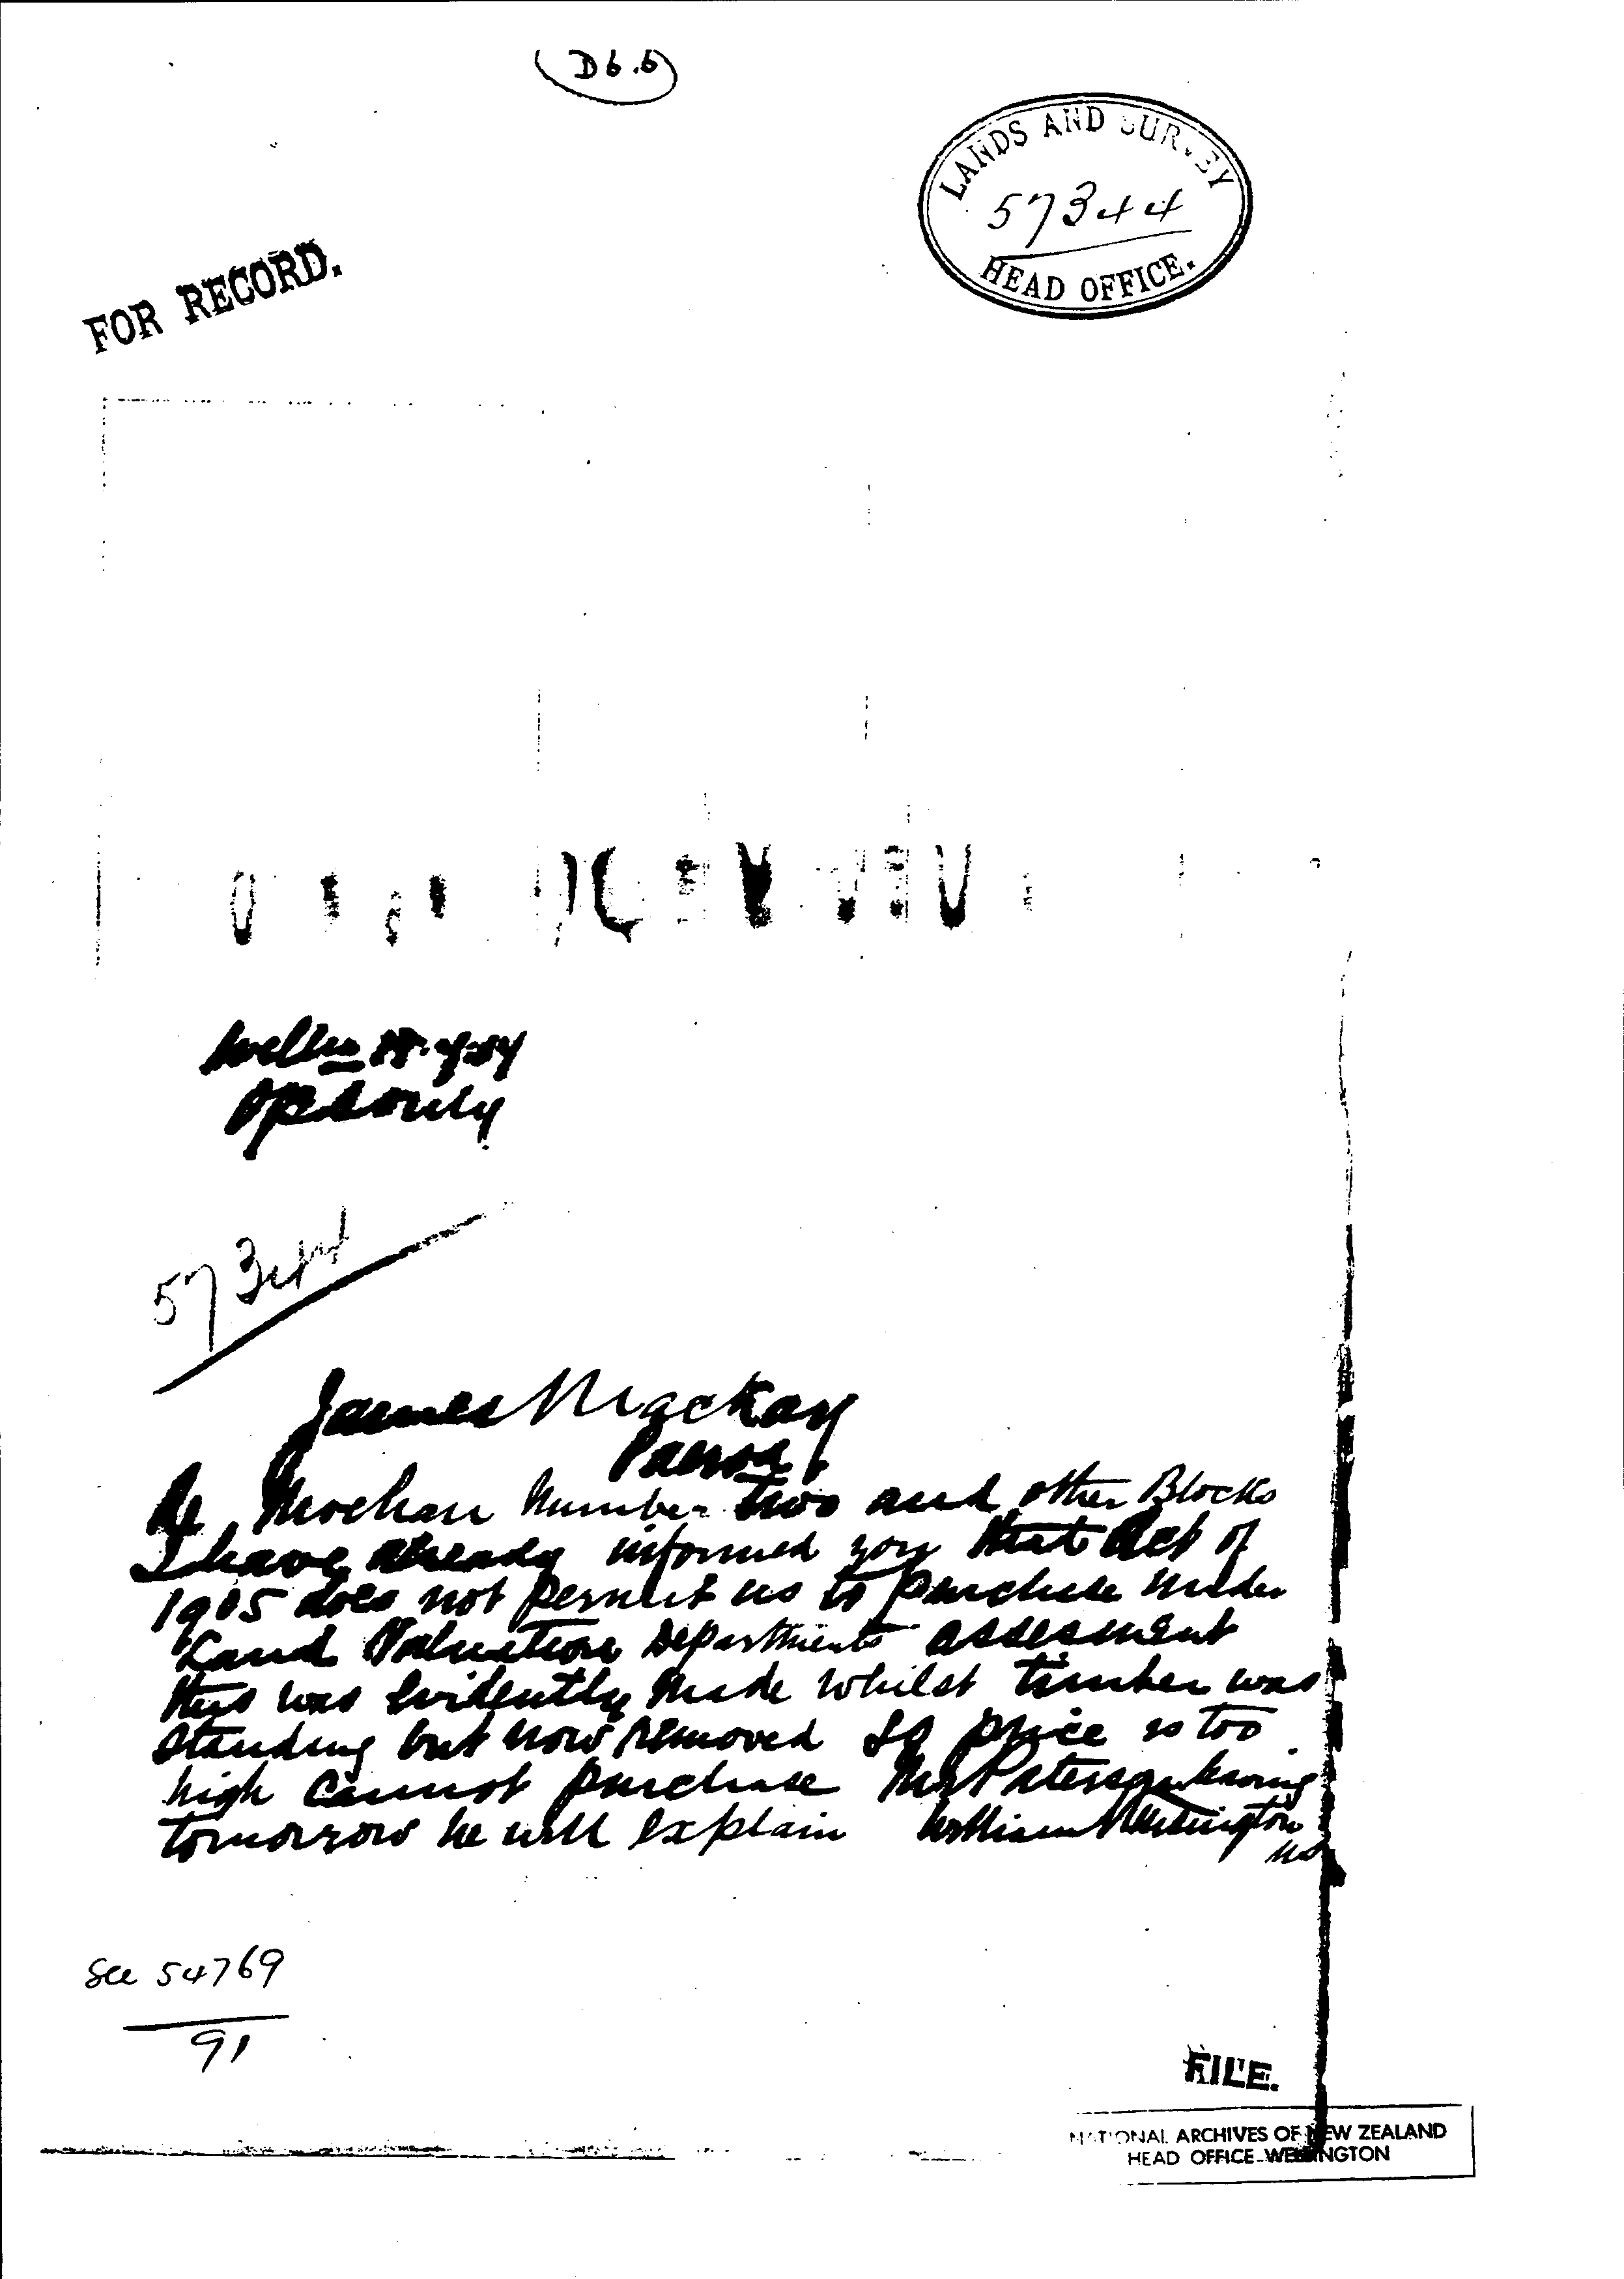 D6.6
LANDS AND SURVEY
57344
HEAD OFFICE.
FOR RECORD.
573
James Mackay
Paeroa
Re Moehau Number two and other Blocks
I have already informed you that Act of
1905 does not permit us to purchase under
Land Valuation Departments assesment
this was evidently made whilst timber was
standing but now removed so price is too
high cannot purchase Mr Paterson leaving
tomorrow he will explain
See 54769
91
FILE.
NATIONAL ARCHIVES OF NEW ZEALAND
HEAD OFFICE-WELLINGTON